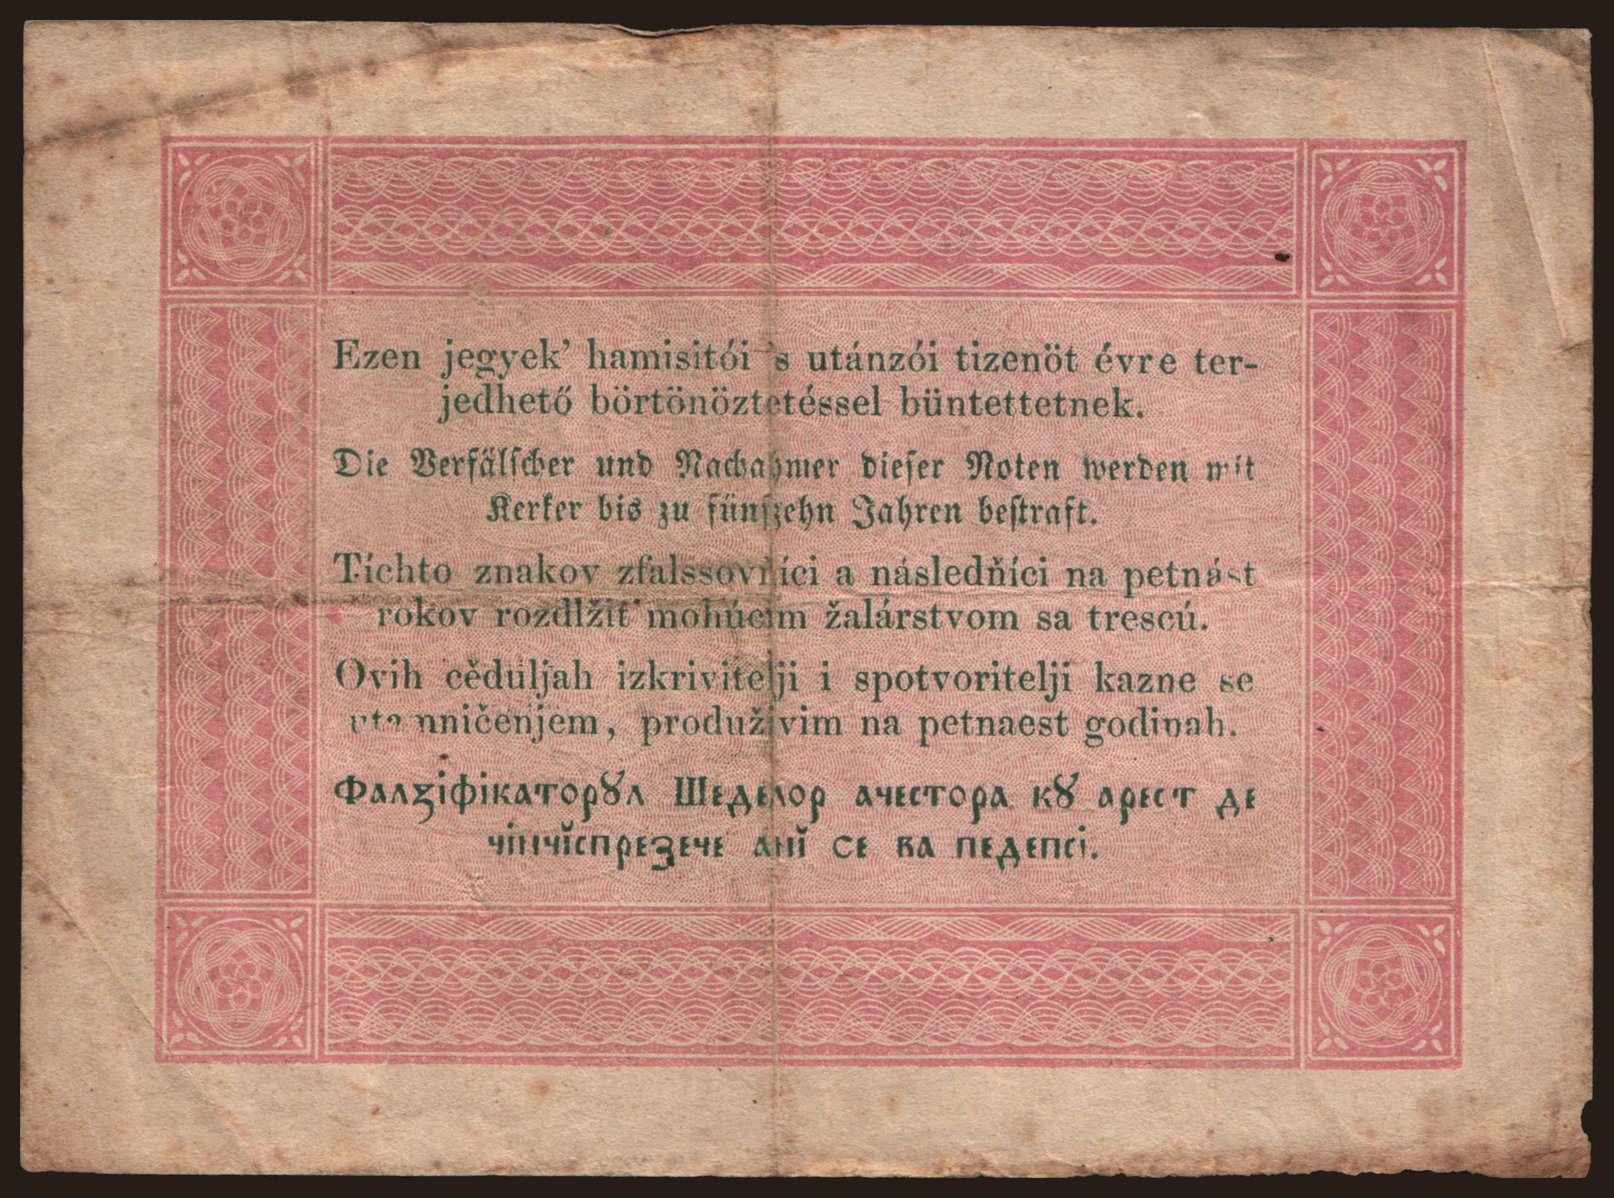 Ezen jegyek’ hamisitói ’s utánzói tizenöt évre ter-
jedhető börtönöztetéssel büntettetnek.
Die Verfälscher und Nachahmer dieser Noten werden mit
Kerker bis zu fünfzehn Jahren bestraft.
Tíchto znakov zfalssovňíci a následňíci na petnást
rokov rozdlžiť mohúcim žalárstvom sa trescú.
Ovih cěduljah izkrivitelji i spotvoritelji kazne se
utamničenjem, produživim na petnaest godinah.
Фалꙁіфікаторꙋл Шеделор ачестора кꙋ арест де
чінчĭспреꙁече анĭ се ва педепсі.